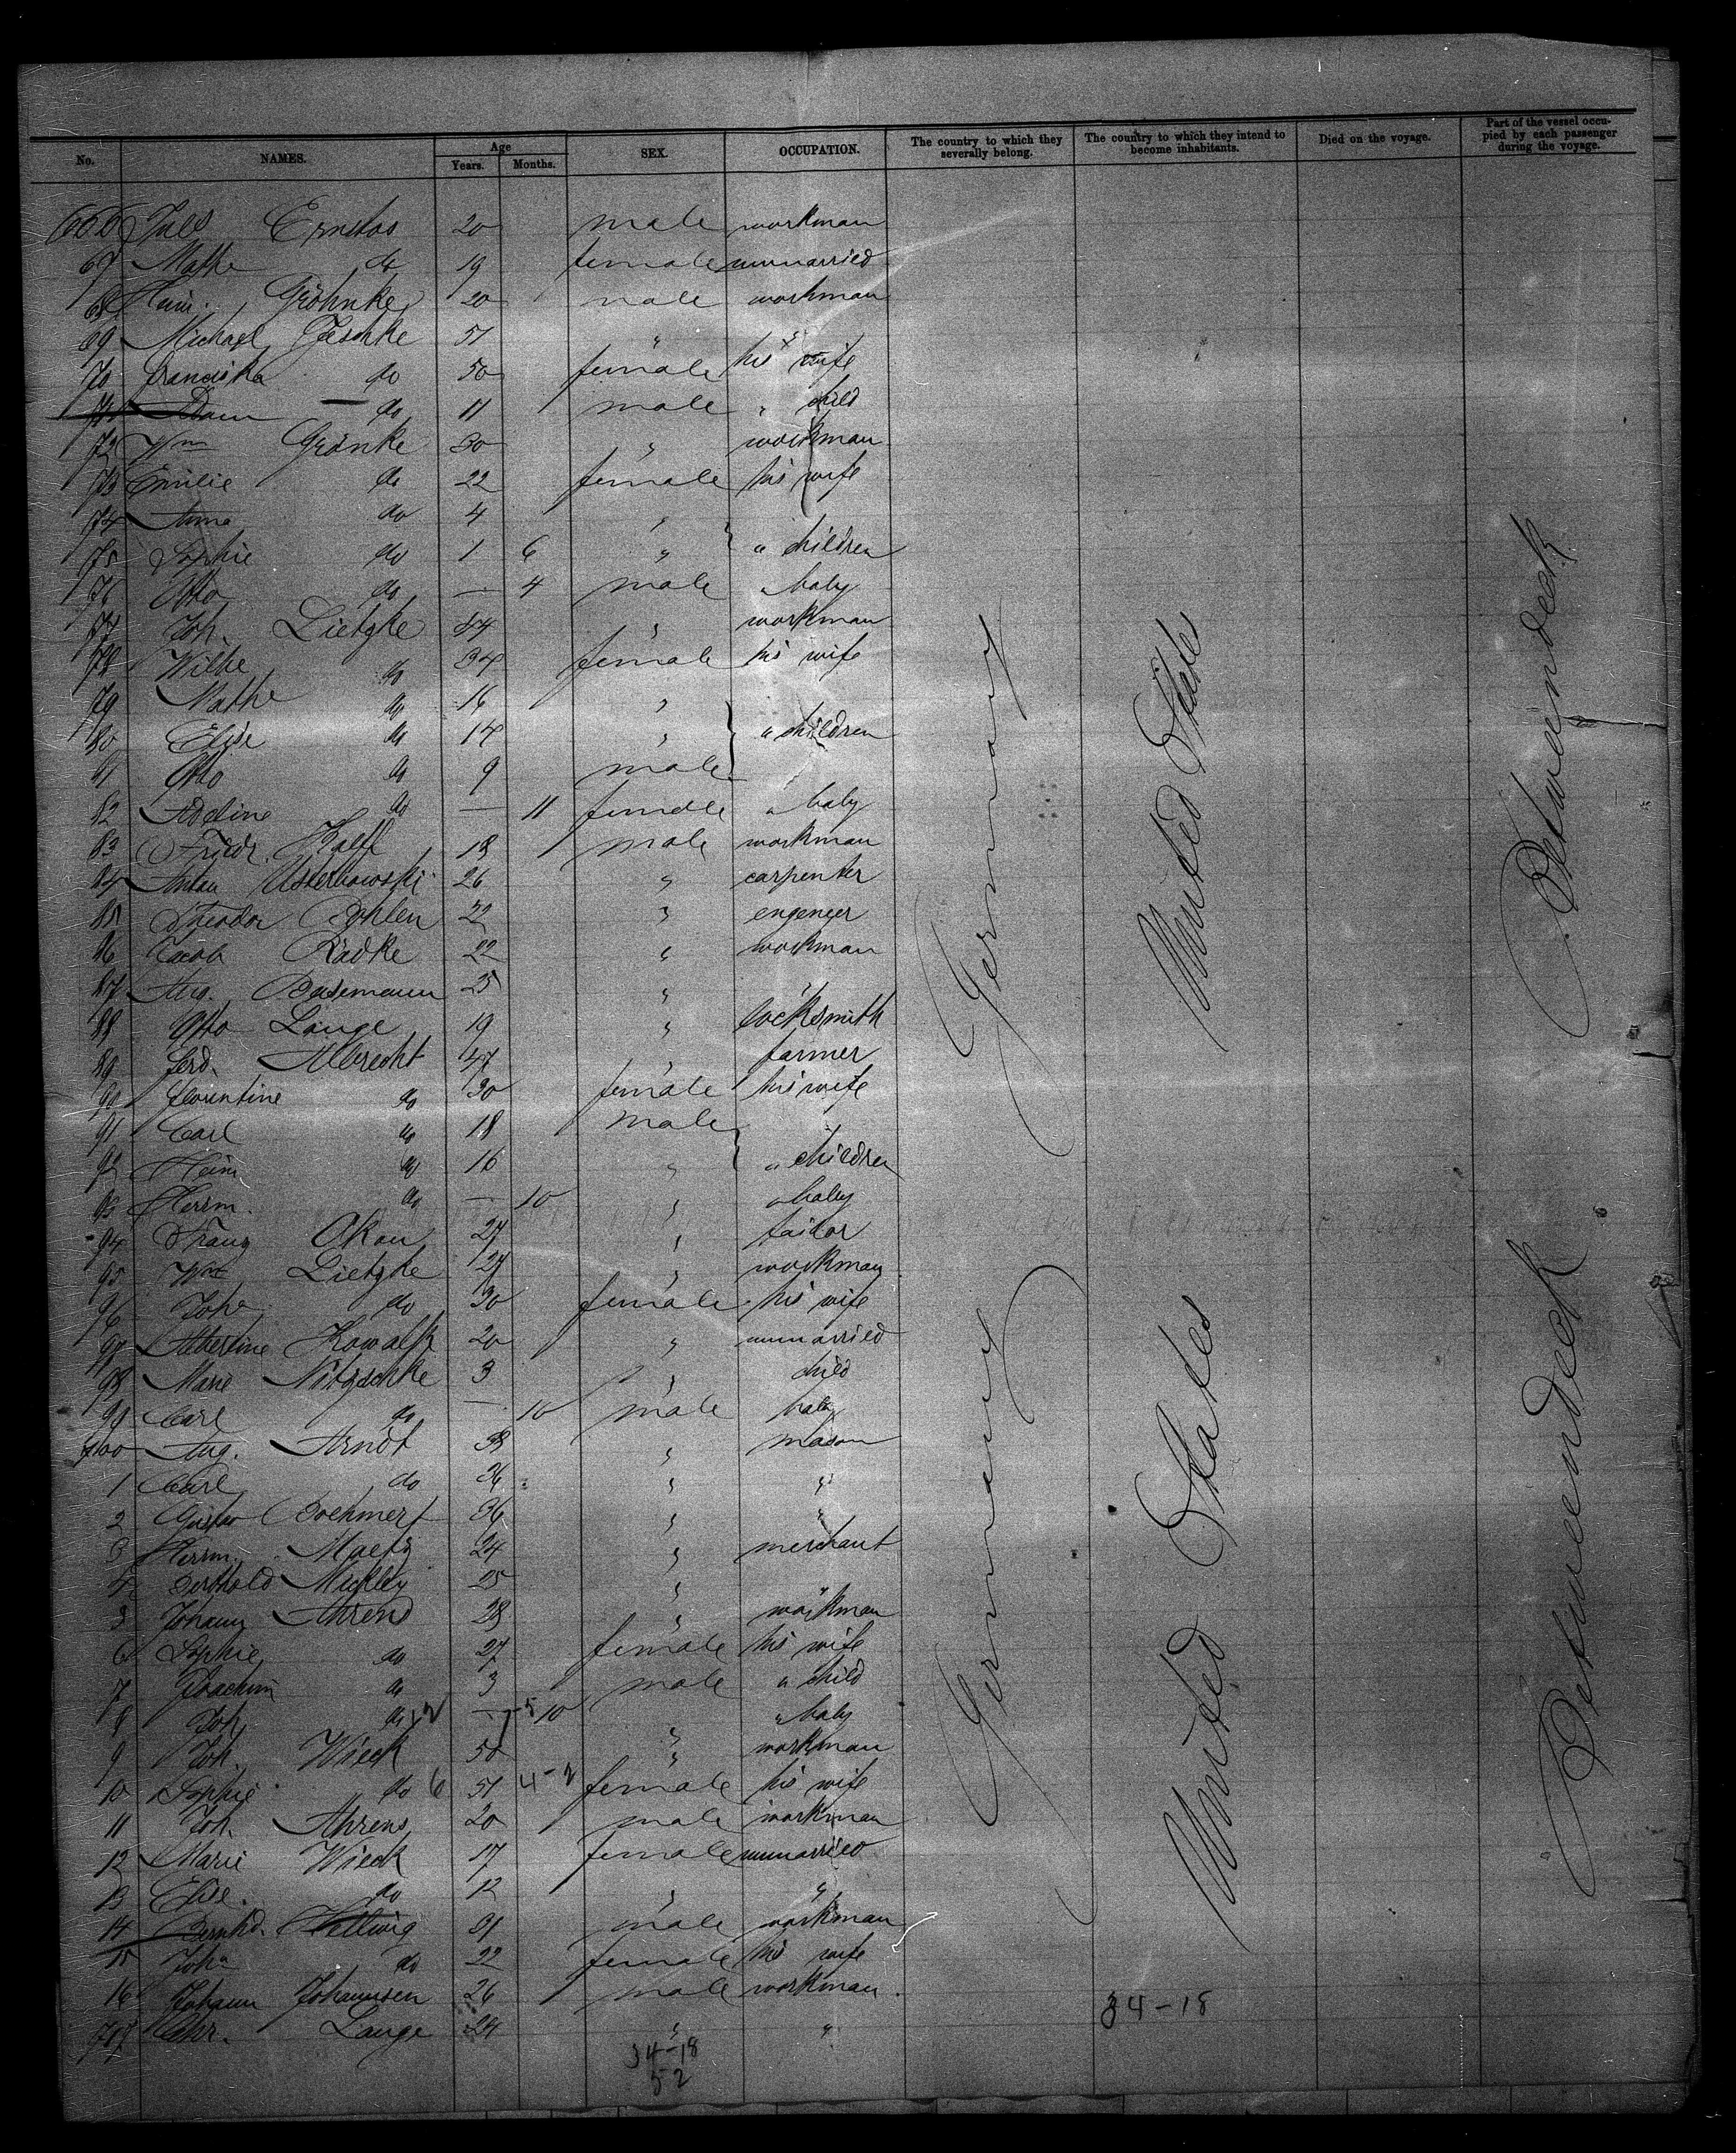 No. NAMES. Age Years. Months. SEX. OCCUPATION. The country to which they severally belong. The country to which they intend to become inhabitants. Died on the voyage. Part of the vessel occupied by each passenger during the voyage.
666 Ernstos 20 male workman
67 Mathe do 19 female unmarried
68 Heinr. Gröhnke 20 male workman
69 Michael Jeschke 51 " "
70 Franciska do 50 female his wife
71 Adam do 11 male " child
72 Wm Grönke 30 " workman
73 Emilie do 22 female his wife
74 Anna do 4 "
75 Sophie do 1 6 " " children
76 Otto do — 4 male " baby
77 Joh. Lietzke " workman
78 Wilhe do 34 female his wife
79 Mathe do 16 "
80 Elise do 14 " " children
81 Otto do 9 male
82 Adeline do — 11 female " baby
83 Friedr. 18 male workman
84 Anton 26 " carpenter
85 Theodor Bohlen 22 " engeneer
86 Jacob Radke 22 " workman
87 Aug. Basemann 25 " "
88 Otto Lange 19 " locksmith
89 Ferd. Albrecht 47 " farmer
90 Flourntine do 30 female his wife
91 Carl do 18 male
92 Heinr do 16 " " children
93 Herrm. do — 10 " " baby
94 Franz Okon 27 " tailor
95 Wm Lietzke 27 " workman
96 Johe do 30 female his wife
97 Albertine Kowalk 20 " unmarried
98 Marie Nitzschke 3 " child
99 Carl do — 10 male baby
700 Aug. Arndt 38 " mason
1 Carl do 36 " "
2 Gustav Boehmert 36 " "
3 Herrm. 24 " merchant
4 Berthold Mickley 25 " "
5 Johann Ahrend 28 " workman
6 Sophie do 27 female his wife
7 Joachim do 3 male " child
8 Joh. do — 10 " " baby
9 Joh. Wieck 50 " workman
10 Sophie do 51 4-2 female his wife
11 Joh. Ahrens 20 male workman
12 Marie Wieck 17 female unmarried
13 Elise. do 12 " "
14 Bernhd. Hellwig 31 male workman
15 Joha do 22 female his wife
16 Johann Johannsen 26 male workman
717 Chr. Lange 24 " "
Germany United States Betweendeck
Germany United States Betweendeck
34-18
34-18
52